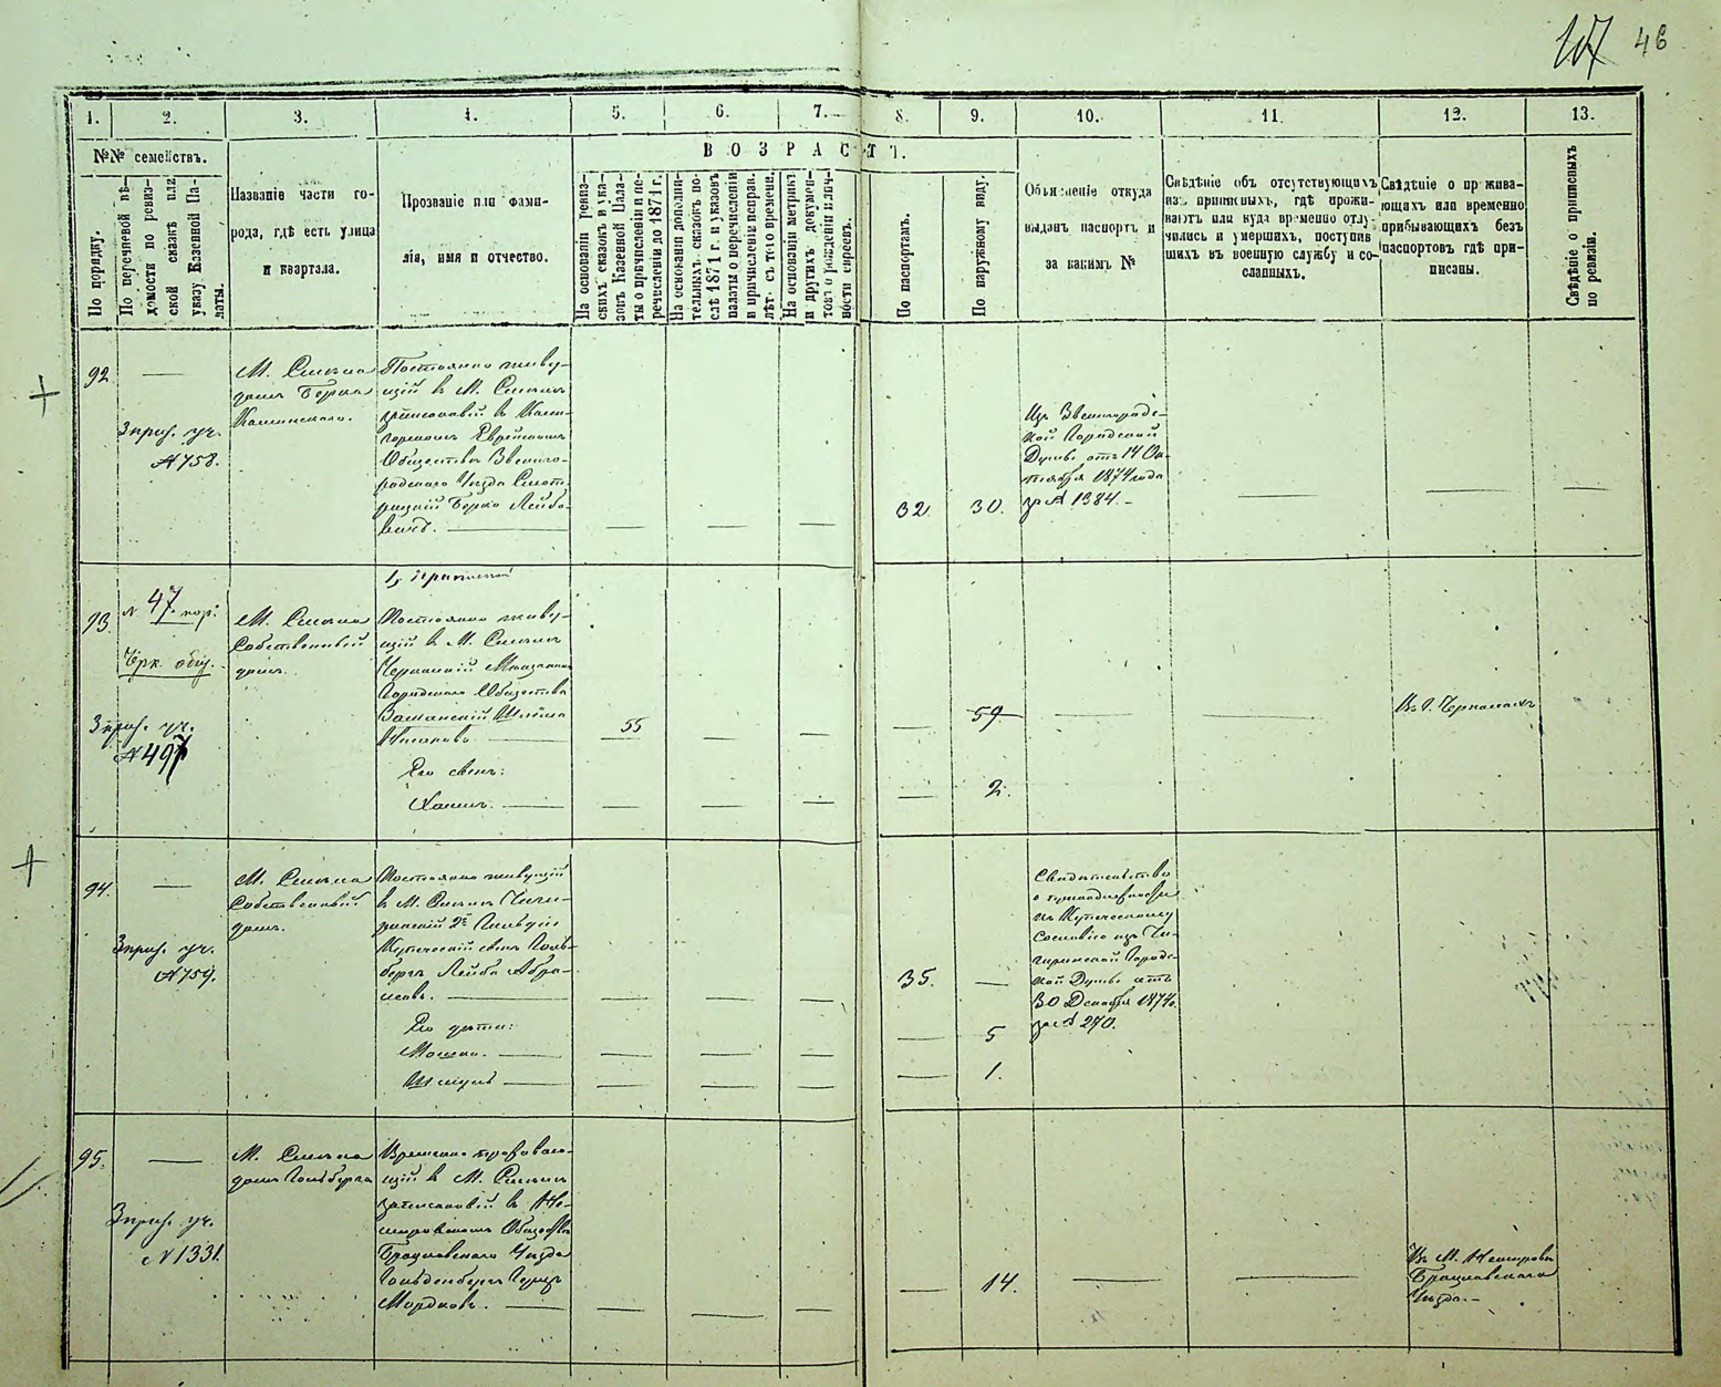 46
1. 2. 3. 4. 5. 6. 7. 8. 9. 10. 11. 12. 13.
№№ семействъ.
ВОЗРАСТ
По порядку.
По перечневой вѣ-
домости по ревиз-
ской сказкѣ или
указу Казенной Па-
латы.
Названіе части го-
рода, гдѣ есть улица
и квартала.
Прозваніе или фами-
лія, имя и отчество.
На основаніи ревиз-
скихъ сказокъ и ука-
зовъ Казенной Пала-
ты о причисленіи и пе-
речисленіи до 1874 г.
На основаніи дополни-
тельныхъ сказокъ по-
слѣ 1874 г. и указовъ
палаты о перечисленіи
и причисленіи исправ.
лѣт. съ того времени.
На основаніи метрикъ
и другихъ докумен-
товъ о рожденіи и лич-
ности евреевъ.
По паспортамъ.
По наружному виду.
Объясненіе откуда
выданъ паспортъ и
за какимъ №
Свѣдѣніе объ отсутствующихъ
изъ приписныхъ, гдѣ прожи-
ваютъ или куда временно отлу-
чились и умершихъ, поступив
шихъ въ военную службу и со-
сланныхъ.
Свѣдѣніе о прожива-
ющихъ или временно
прибывающихъ безъ
паспортовъ гдѣ при-
писаны.
Свѣдѣніе о приписныхъ
по ревизіи.
92.
3 приз. уч.
№ 758.
М. Смѣла
домъ Берка
Каминскаго.
Постоянно живу-
щій въ М. Смѣлѣ
Еврейскомъ
Обществѣ Звениго-
родскаго Уѣзда
Берко Лейбо-
вичъ.
32.
30.
Изъ Звенигородс-
кой Городской
Думы отъ 14 Ок-
тября 1874 года
за № 1384.
93.
№ 47 пор.
Черк. общ.
3 приз. уч.
№ 497
М. Смѣла
Собственный
домъ.
Постоянно живу-
щій въ М. Смѣлѣ
Черкаскій Мѣщанинъ
Городскаго Общества
55
59
Въ г. Черкасахъ
Его сынъ:
Хаимъ.
2.
94.
3 приз. уч.
№ 759.
М. Смѣла
Собственный
домъ.
Постоянно живущій
въ М. Смѣлѣ Чиги-
ринскій 2й Гильдіи
Купеческій сынъ Голь-
бергъ Лейба Абра-
мовъ.
35.
Свидетельство
о принадлежности
къ Купеческому
Сословію изъ Чи-
гиринской Городс-
кой Думы отъ
30 Декабря 1874 г.
за № 270.
Его дѣти:
Мошко.
5
Шмуль
1.
95.
3 приз. уч.
№ 1331.
М. Смѣла
домъ Гольберга
Временно прожива-
щій въ М. Смѣлѣ
записанный въ Не-
мировскомъ Обществѣ
Брацлавскаго Уѣзда
Гольденбергъ
Мордковъ.
14.
Въ М. Немировѣ
Брацлавскаго
Уѣзда.